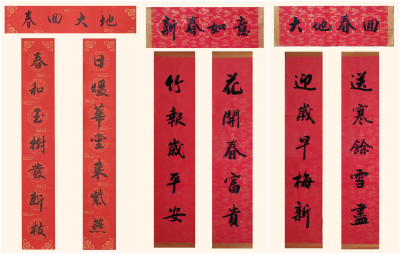 春回大地
日暖華堂来紫燕
春和玉樹發新枝
新春如意
花開春富貴
竹報歲平安
大地春回
送寒餘雪盡
迎歲早梅新